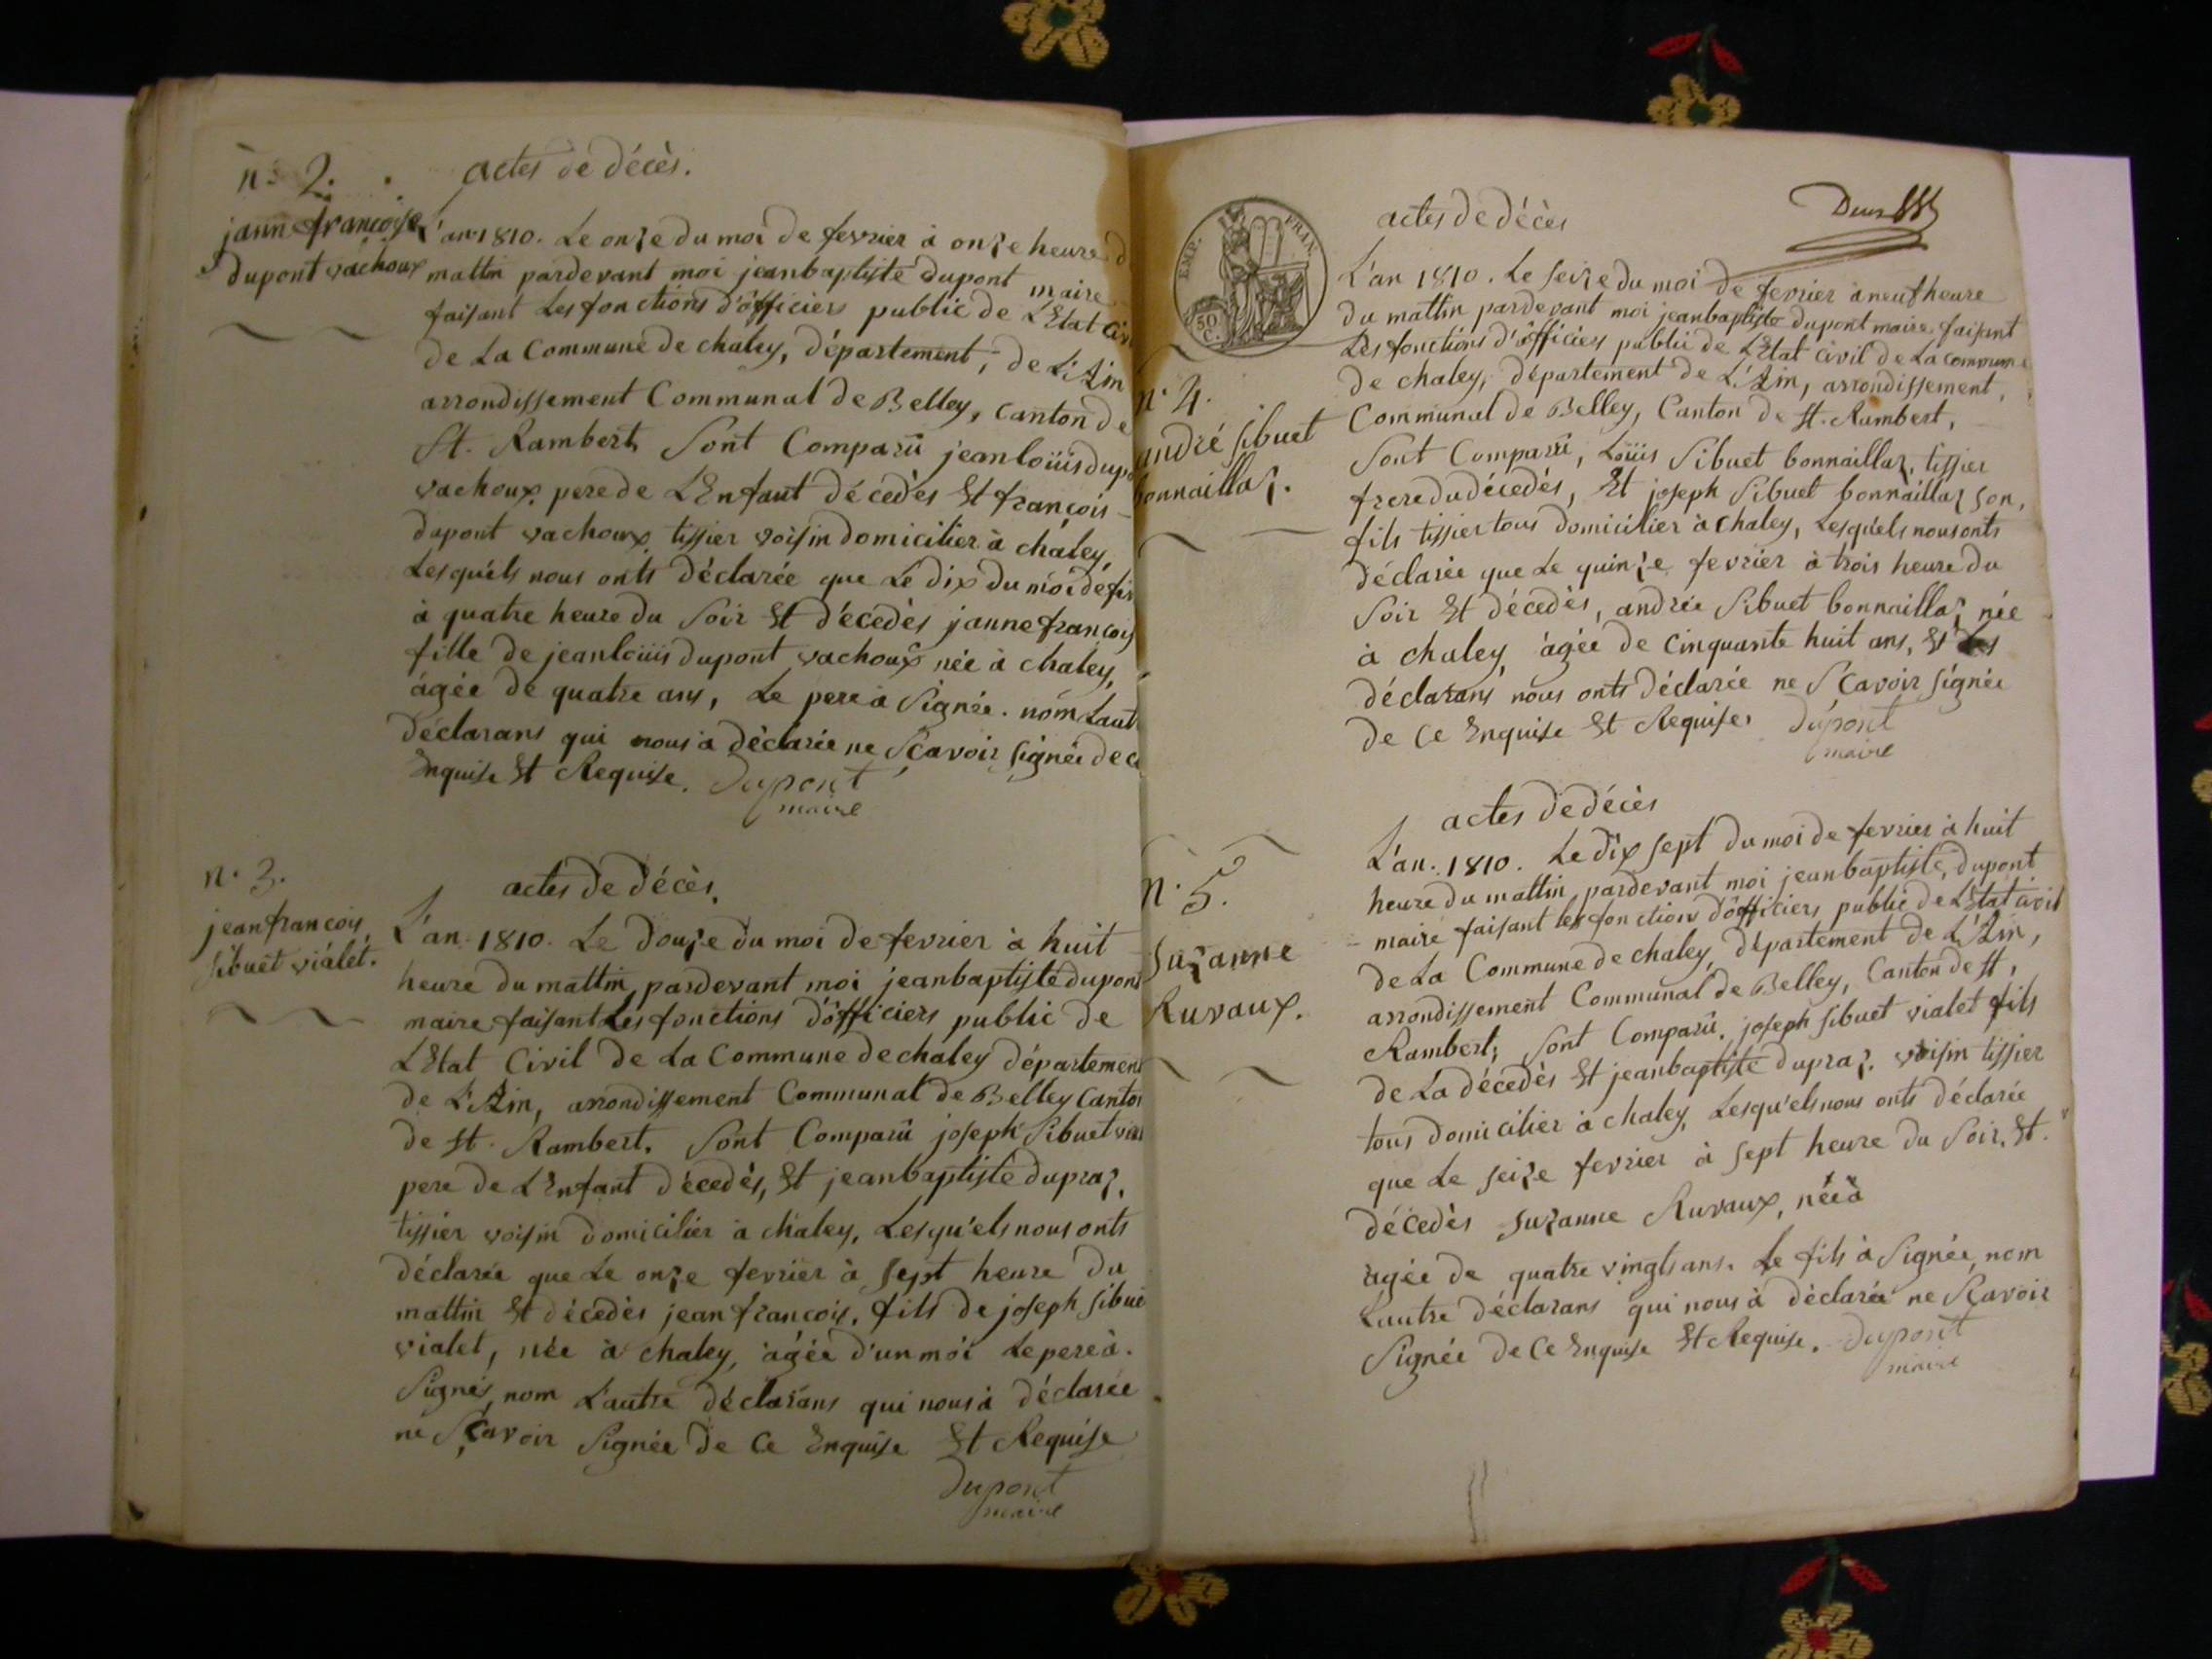 n.° 2.
actes de décès.
janne françoise
dupont vachoux
L'an 1810. Le onze du moi de fevrier à onze heure d
mattin pardevant moi jeanbaptiste dupont maire
faisant Les fonctions d'officiers public de L'Etat civ
de La Commune de chaley, département, de L'Ain
arrondissement Communal de Belley, canton de
St. Rambert, Sont Comparû jean loüis dupo
vachoux, pere de L'Enfant décedès Et françois
dupont vachoux tissier voisin domicilier à chaley,
Lesquéls nous onts déclarée que Le dix du moi de fev
à quatre heure du Soir Et décedès janne françois
fille de jean loüis dupont vachoux née à chaley,
àgée de quatre ans, Le pere à Signée. nom Laut
déclarans qui nous à déclarée ne Sçavoir signée de c
Enquise Et Requise. Dupont
maire
n.° 3.
jean françois,
sibuet vialet.
actes de décès.
L'an 1810. Le douze du moi de fevrier à huit
heure du mattin, pardevant moi jeanbaptiste dupont
maire faisant Les fonctions d'officiers public de
L'Etat Civil de La Commune de chaley département
de L'Ain, arrondissement Communal de Belley Canton
de St. Rambert, Sont Comparû joseph Sibuet vial
pere de L'Enfant décedès, Et jeanbaptiste dupraz,
tissier voisin domicilier à chaley, Lesqu'els nous onts
déclarée que Le onze fevrier à sept heure du
mattin Et décedès jean françois, fils de joseph sibue
vialet, née à chaley, àgée d'un moi Le pere à.
Signés, nom L'autre déclarans qui nous à déclarée
ne Sçavoir Signée de Ce Enquise Et Requise
Dupont
maire
EMP. FRAN.
50 C.
actes de décès
n.° 4.
andré sibuet
bonnaillaz.
L'an 1810. Le seize du moi de fevrier à neuf heure
du mattin pardevant moi jeanbaptiste dupont maire, faisant
Les fonctions d'officiers public de L'Etat Civil de La commune
de chaley, département de L'Ain, arrondissement,
Communal de Belley, Canton de St. Rambert,
Sont Comparû, Loüis Sibuet bonnaillaz, tissier
frere du décedès, Et joseph Sibuet bonnaillaz son,
fils tissier tous domicilier à chaley, Lesquéls nous onts
déclarée que Le quinze fevrier à trois heure du
Soir Et décedès, andrée Sibuet bonnaillaz née
à chaley àgée de Cinquante huit ans, Et Les
déclarans nous onts déclarée ne Sçavoir signée
de Ce Enquise Et Requise. Dupont
maire
actes de décès
n.° 5.
Suzanne
Ruvaux.
L'an. 1810. Le dix sept du moi de fevrier à huit
heure du mattin, pardevant moi jeanbaptiste, dupont
maire faisant les fonctions d'officiers public de L'Etat civil
de La Commune de chaley, département de L'Ain,
arrondissement Communal de Belley, Canton de St,
Rambert, Sont Comparû, joseph sibuet vialet fils
de La décedès Et jeanbaptiste dupraz, voisin tissier
tous domicilier à chaley, Lesqu'els nous onts déclarée
que Le seize fevrier à sept heure du Soir, Et
décedès suzanne Ruvaux, née à
àgée de quatre vingts ans. Le fils à Signée, nom
Lautre déclarans qui nous à déclarée ne Sçavoir
Signée de Ce Enquise Et Requise. Dupont
maire